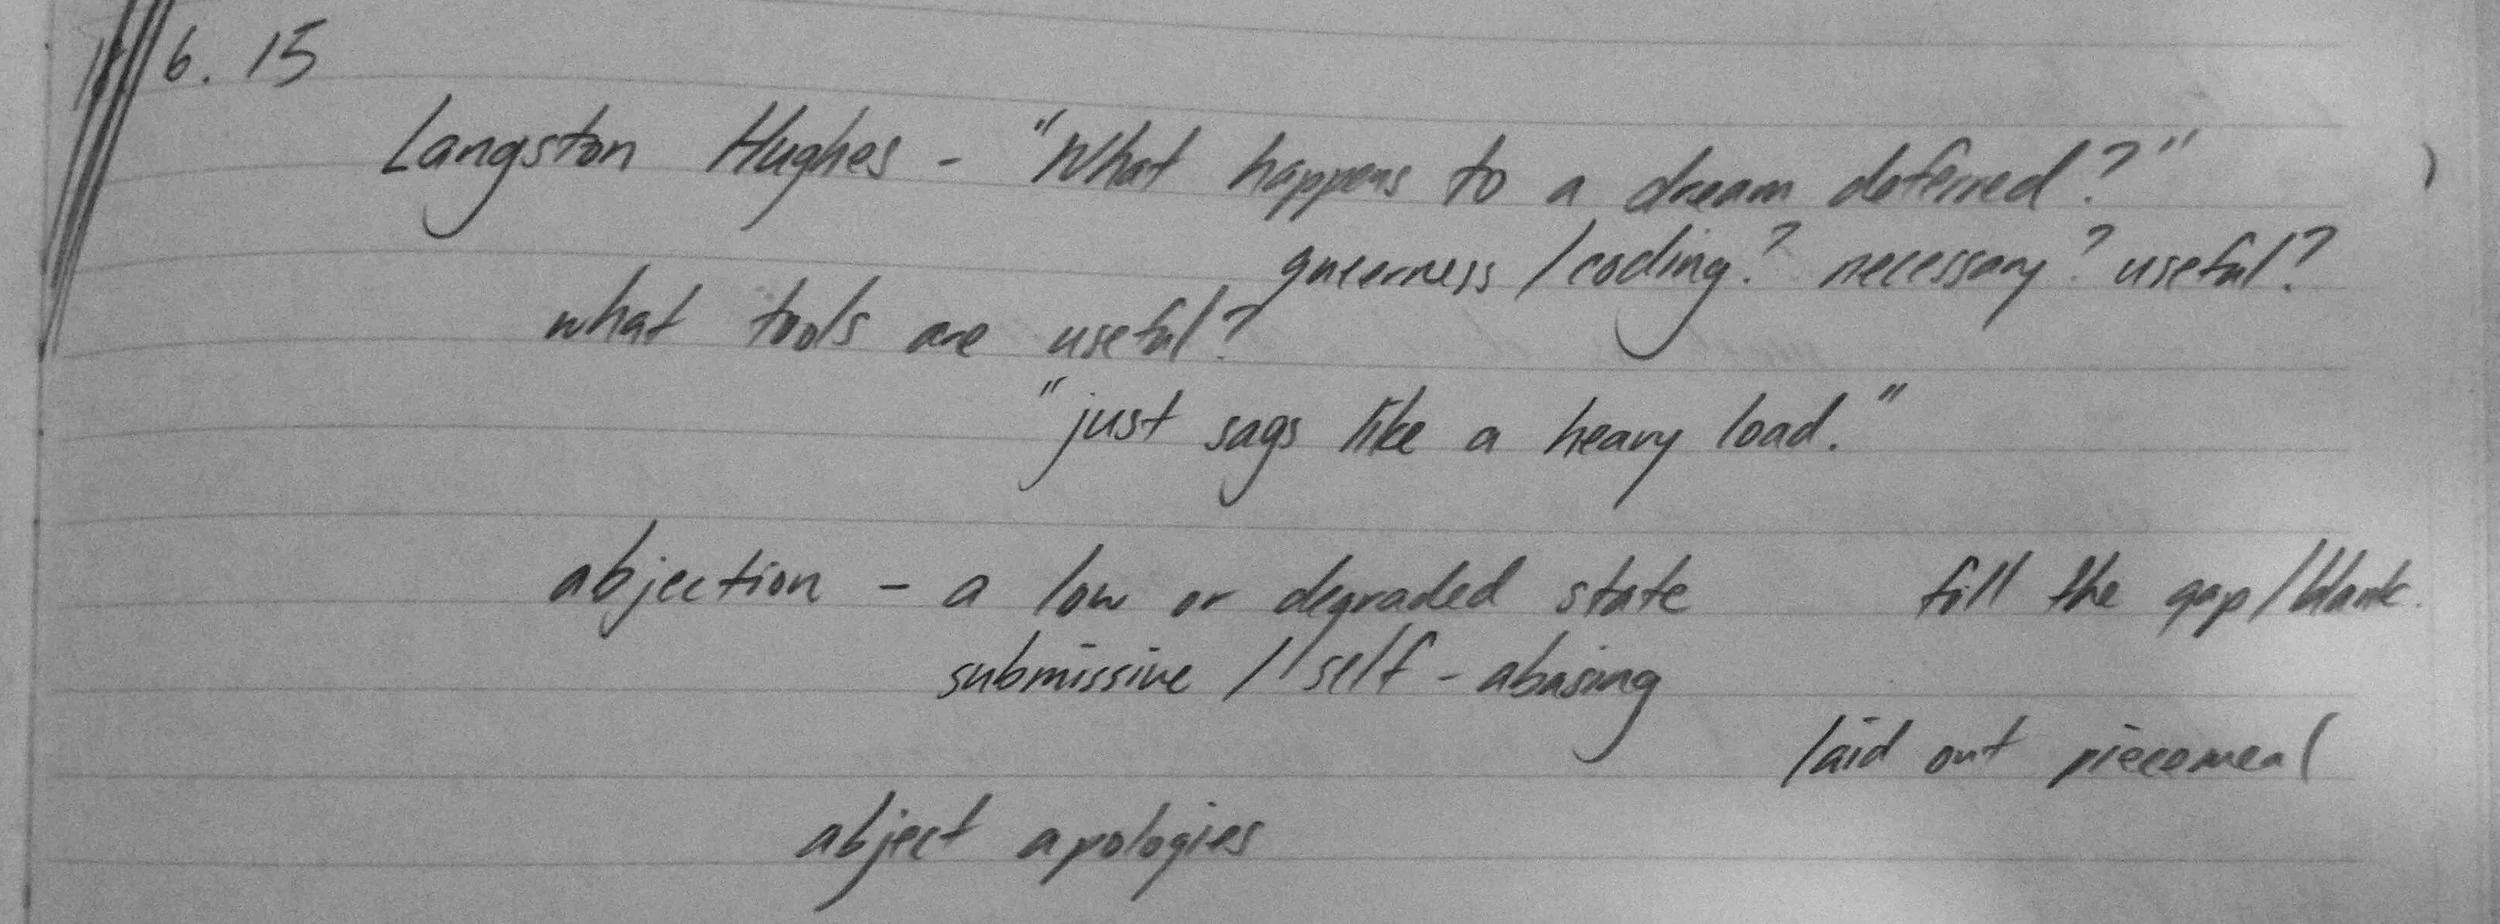 6.15
Langston Hughes - "What happens to a dream deferred?"
queerness / coding? necessary? useful?
what tools are useful?
"just sags like a heavy load."
abjection - a low or degraded state fill the gap/blank.
submissive / self-abasing
laid out piecemeal
abject apologies